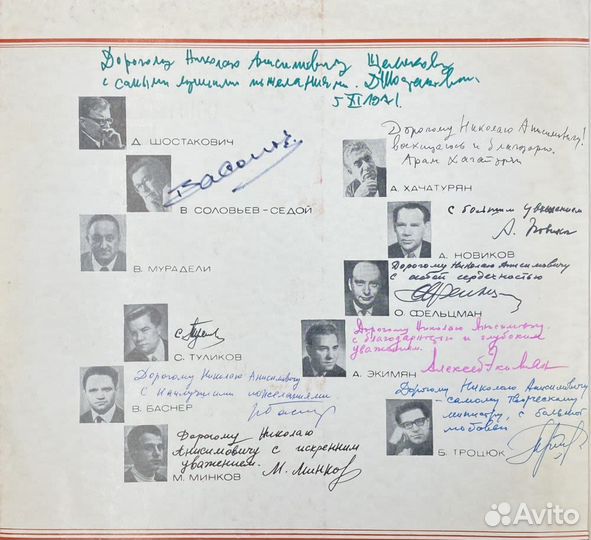 Дорогому Николаю Анисимовичу Щелокову
с самыми лучшими пожеланиями. ДШостакович
5 XI 1971.
Д. ШОСТАКОВИЧ
Дорогому Николаю Анисимовичу!
восхищаюсь и благодарю.
Арам Хачатурян
А. ХАЧАТУРЯН
В. СОЛОВЬЕВ-СЕДОЙ
с большим уважением
А. Новиков
А. НОВИКОВ
В. МУРАДЕЛИ
Дорогому Николаю Анисимовичу
с особой сердечностью
О. ФЕЛЬЦМАН
С. ТУЛИКОВ
Дорогому Николаю Анисимовичу
с благодарностью и глубоким
уважением.
Алексей Экимян
А. ЭКИМЯН
Дорогому Николаю Анисимовичу
с наилучшими пожеланиями
В. БАСНЕР
Дорогому Николаю Анисимовичу
- самому творческому
министру, с большой
любовью
Б. ТРОЦЮК
Дорогому Николаю
Анисимовичу с искренним
уважением.
М. Минков
М. МИНКОВ
Avito